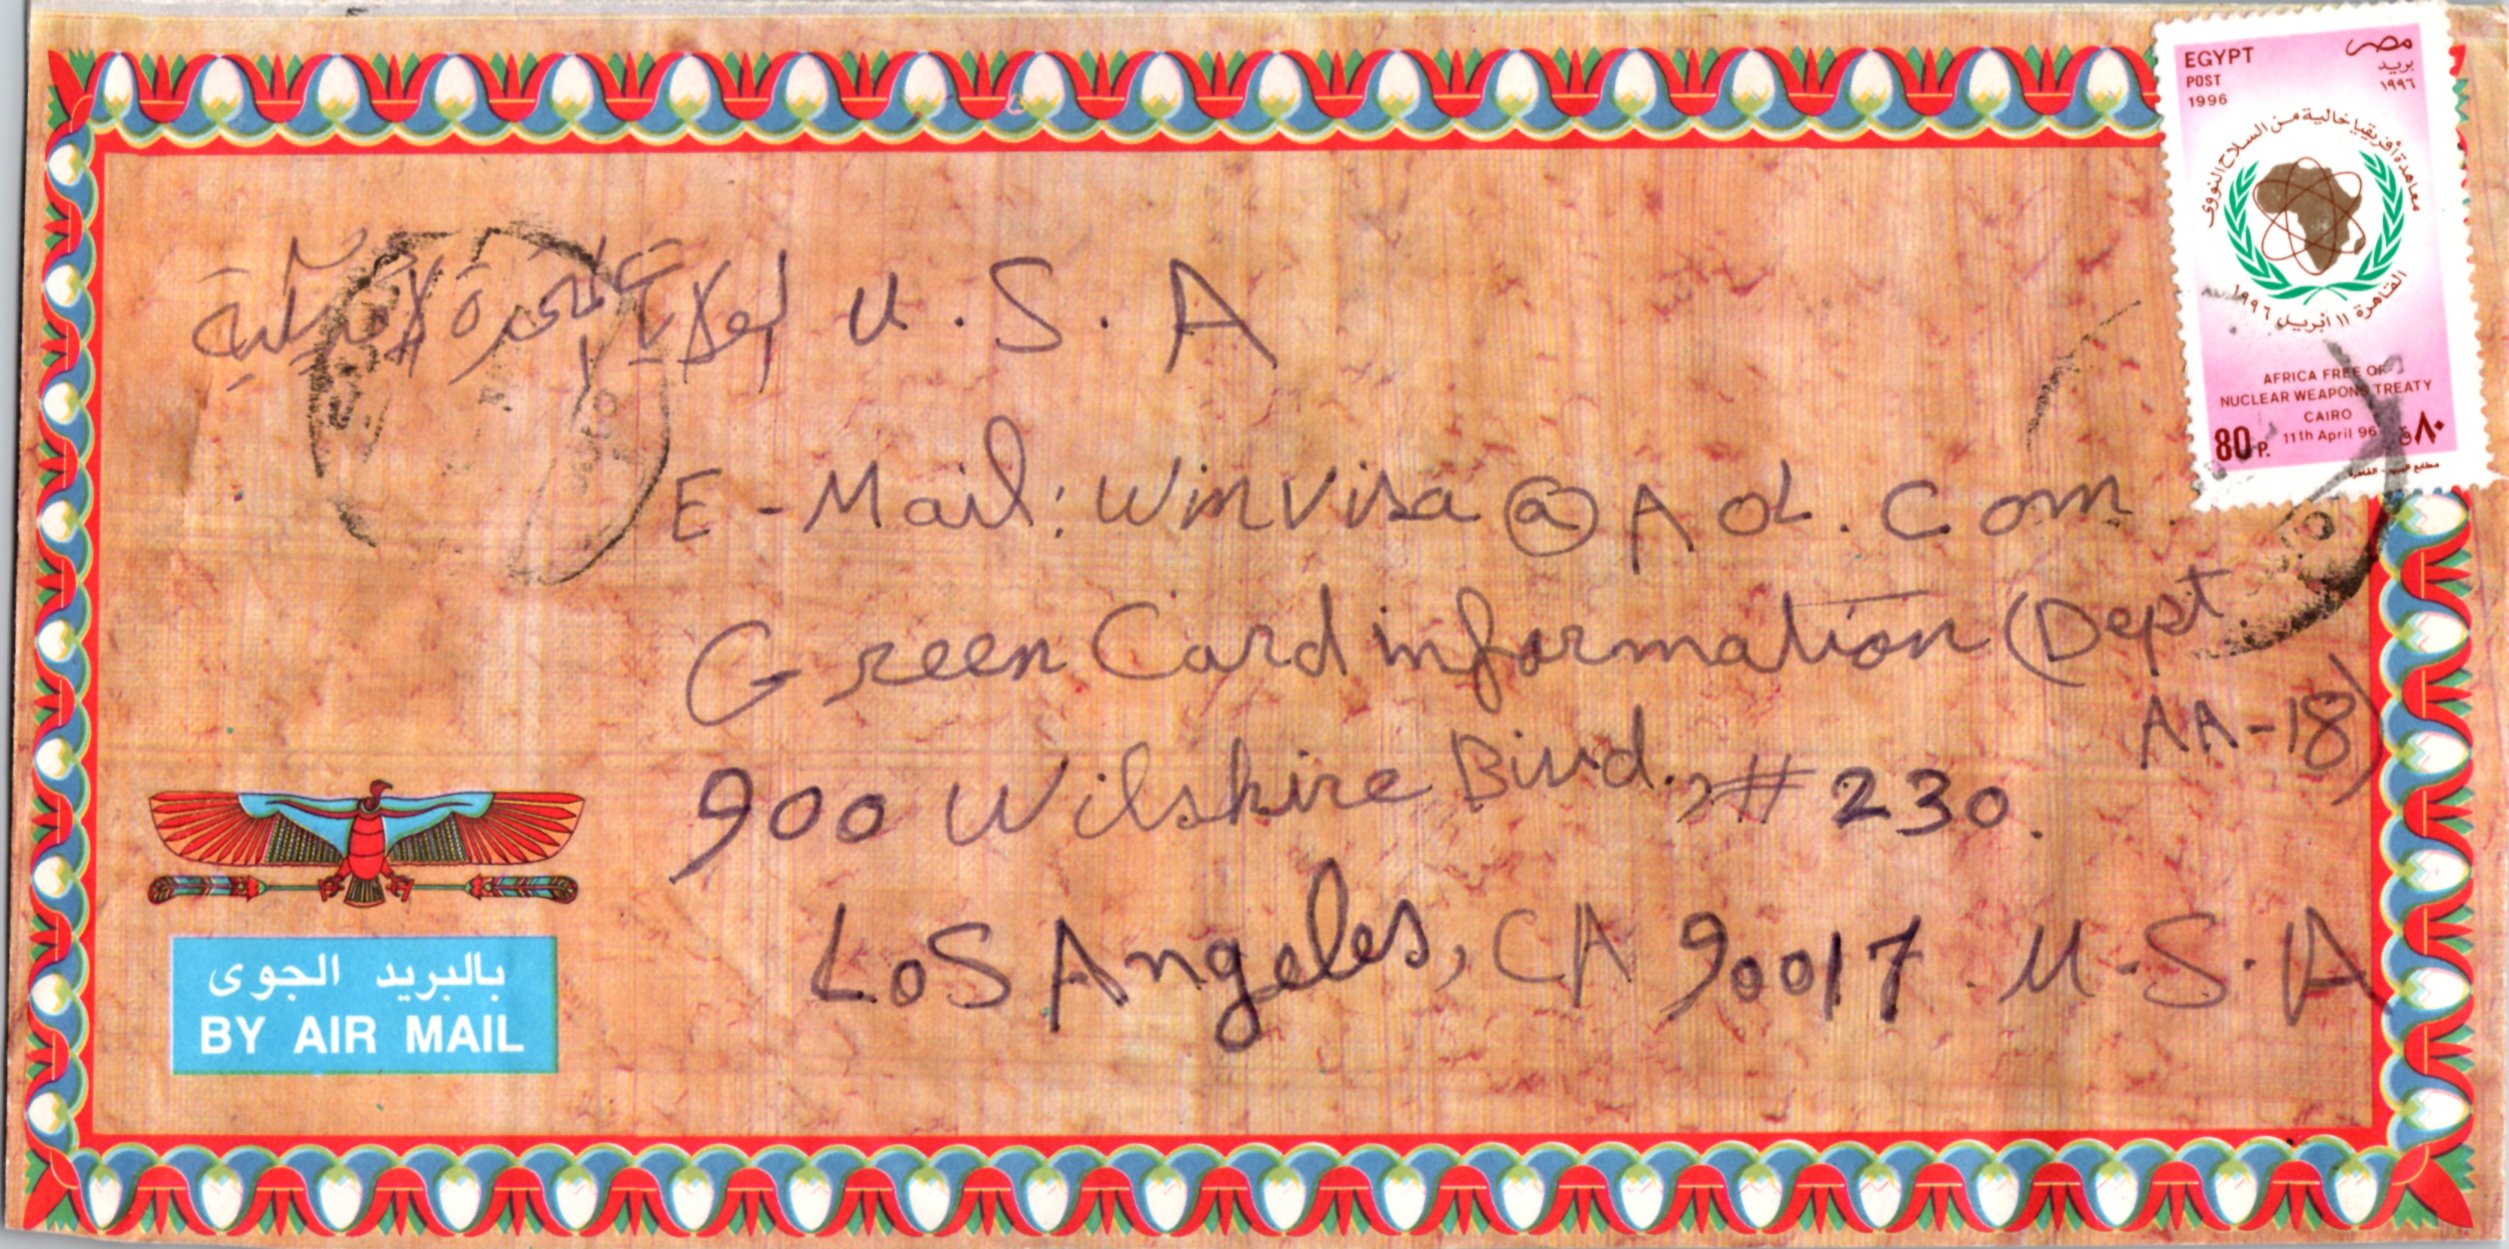 EGYPT
POST
1996
مصر
بريد
١٩٩٦
معاهدة أفريقيا خالية من السلاح النووى
القاهرة ١١ أبريل ١٩٩٦
AFRICA FREE OF
NUCLEAR WEAPONS TREATY
CAIRO
11th April 96
80 P.
٨٠ ق
مطابع البريد - القاهرة
الولايات المتحدة الأمريكية U.S.A
E-Mail: WinVisa@AOL.Com
Green Card information (Dept
AA-18)
900 Wilshire Bivd., # 230.
LoS Angeles, CA 90017. U.S.A
بالبريد الجوى
BY AIR MAIL